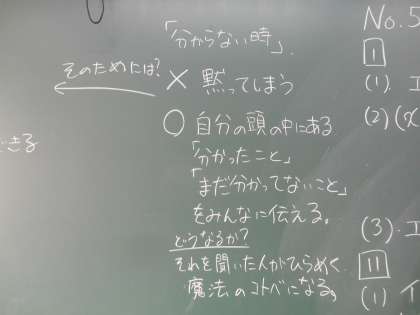 「分からない時」
そのためには?
× 黙ってしまう
○ 自分の頭の中にある
「分かったこと」
「まだ分かってないこと」
をみんなに伝える。
どうなるか?
それを聞いた人がひらめく
魔法のコトバになる。
きる
No.5
1
(1). エ
(2)(x
(3). エ
11
(1) イ